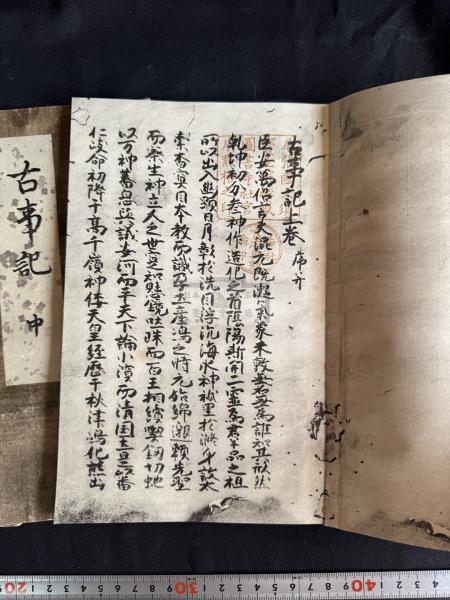 古事記上卷 序并
臣安萬侶言夫混元既凝氣象未效無名無為誰知其形然
乾坤初分參神作造化之首陰陽斯開二靈為群品之祖
所以出入幽顯日月彰於洗目浮沉海水神祇呈於滌身故太
素杳冥因本教而識孕土産嶋之時元始綿邈頼先聖
而察生神立人之世寔知懸鏡吐珠而百王相續喫釼切蛇
以万神蕃息與議安河而平天下論小濱而清國土是以番
仁岐命初降于高千嶺神倭天皇經歴于秋津嶋化熊出
古事記 中
20 30 40